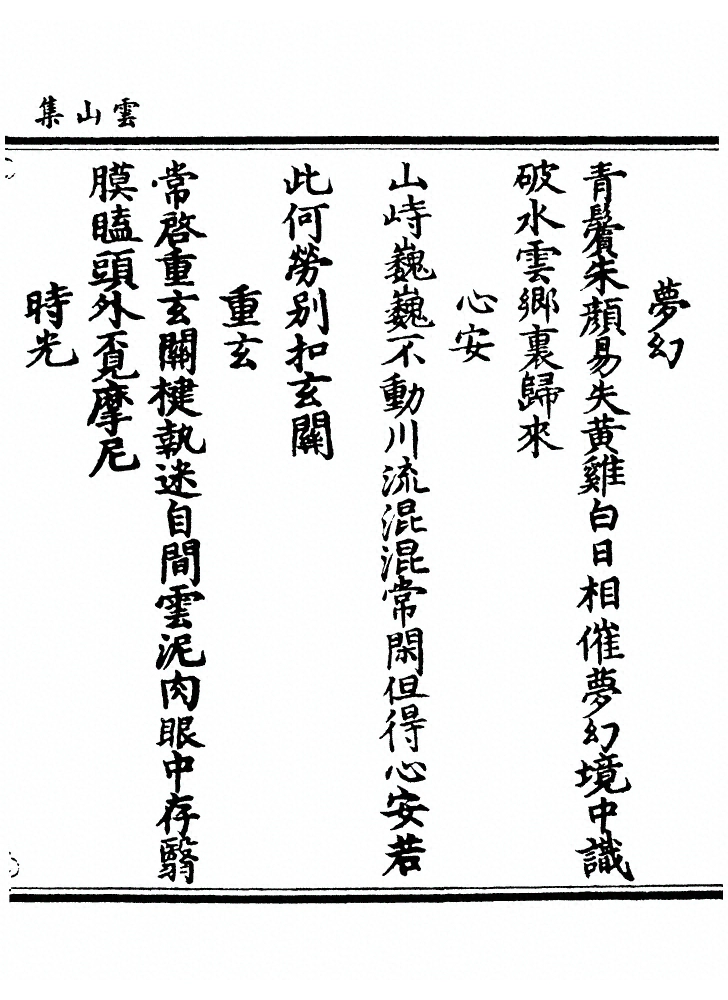 雲山集
夢幻
青鬢朱顏易失黃雞白日相催夢幻境中識
破水雲鄉裏歸來
心安
山峙巍巍不動川流混混常閑但得心安若
此何勞別扣玄關
重玄
常啓重玄關楗執迷自間雲泥肉眼中存翳
膜瞌頭外覔摩尼
時光